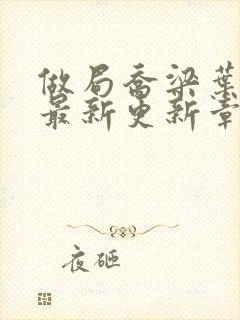 做局乔梁葉
最新更新章
夜砸